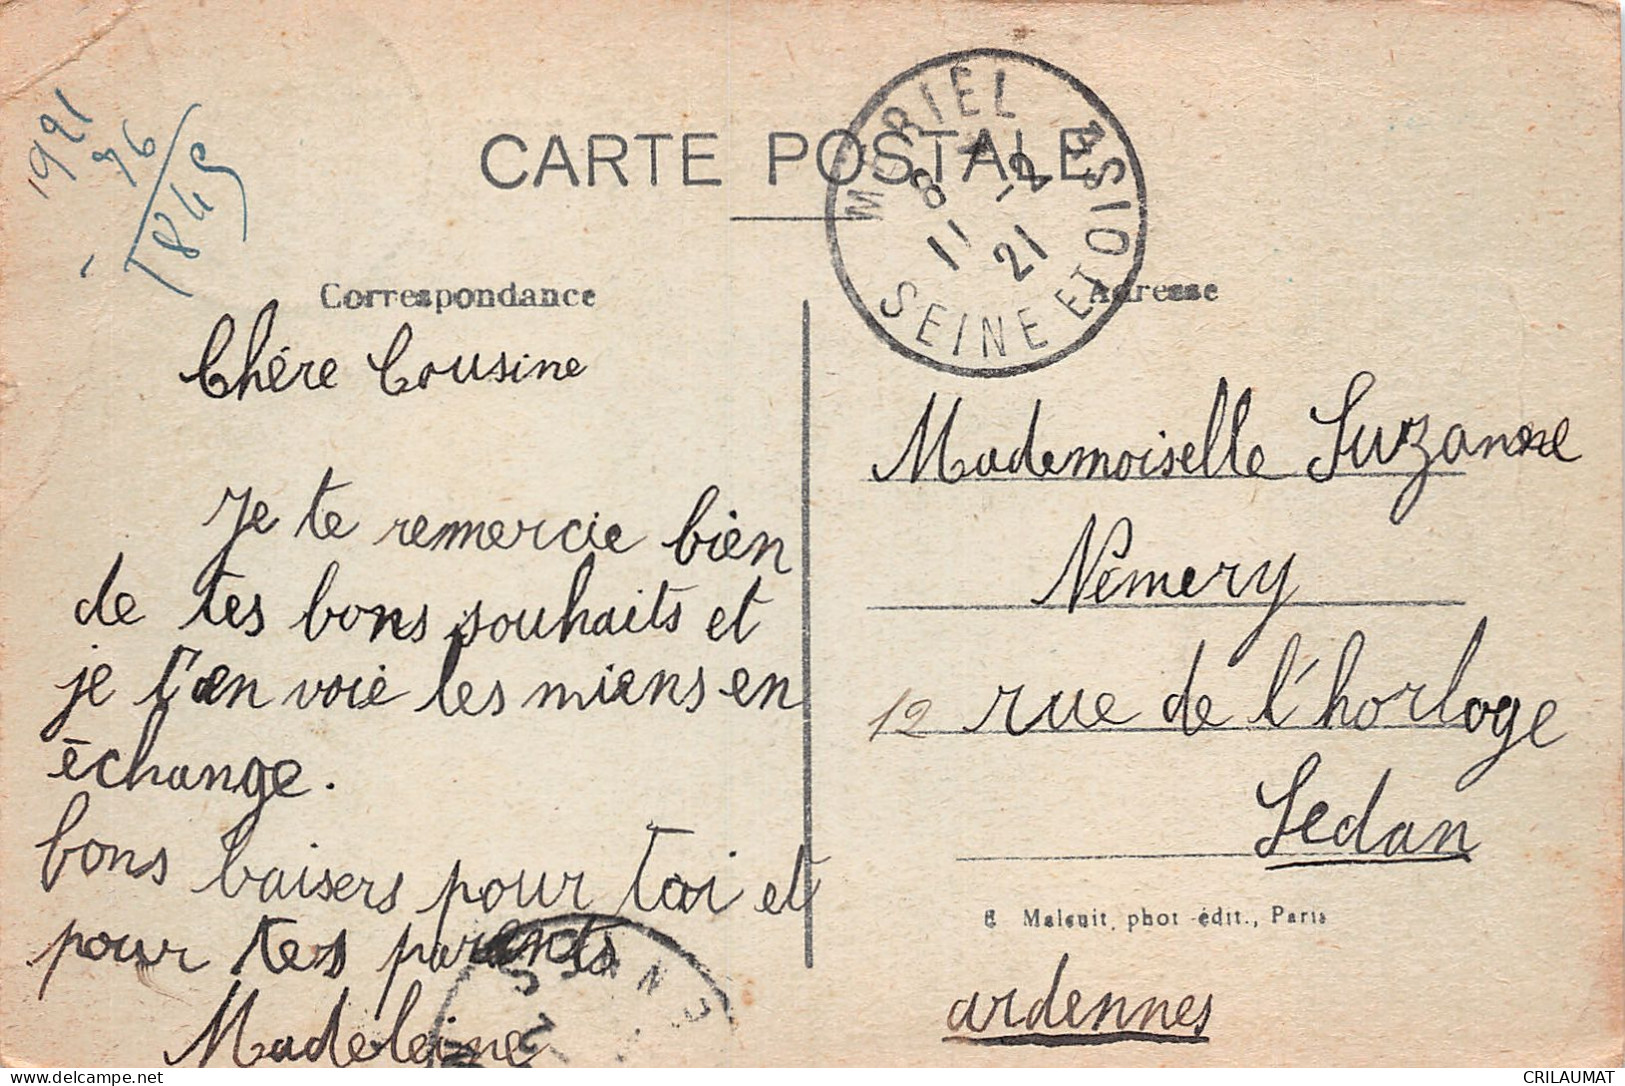 1921
76
1845
CARTE POSTALE
MÉRIEL
SEINE ET OISE
8
11 -2
21
Correspondance
Adresse
Chére Cousine
Je te remercie bien
de tes bons souhaits et
je t'en voie les miens en
échange.
bons baisers pour toi et
pour tes parents
Madeleine
Mademoiselle Suzanne
Némery
12 rue de l'horloge
Sedan
E Maleuit, phot-édit., Paris
ardennes
delcampe.net
CRILAUMAT